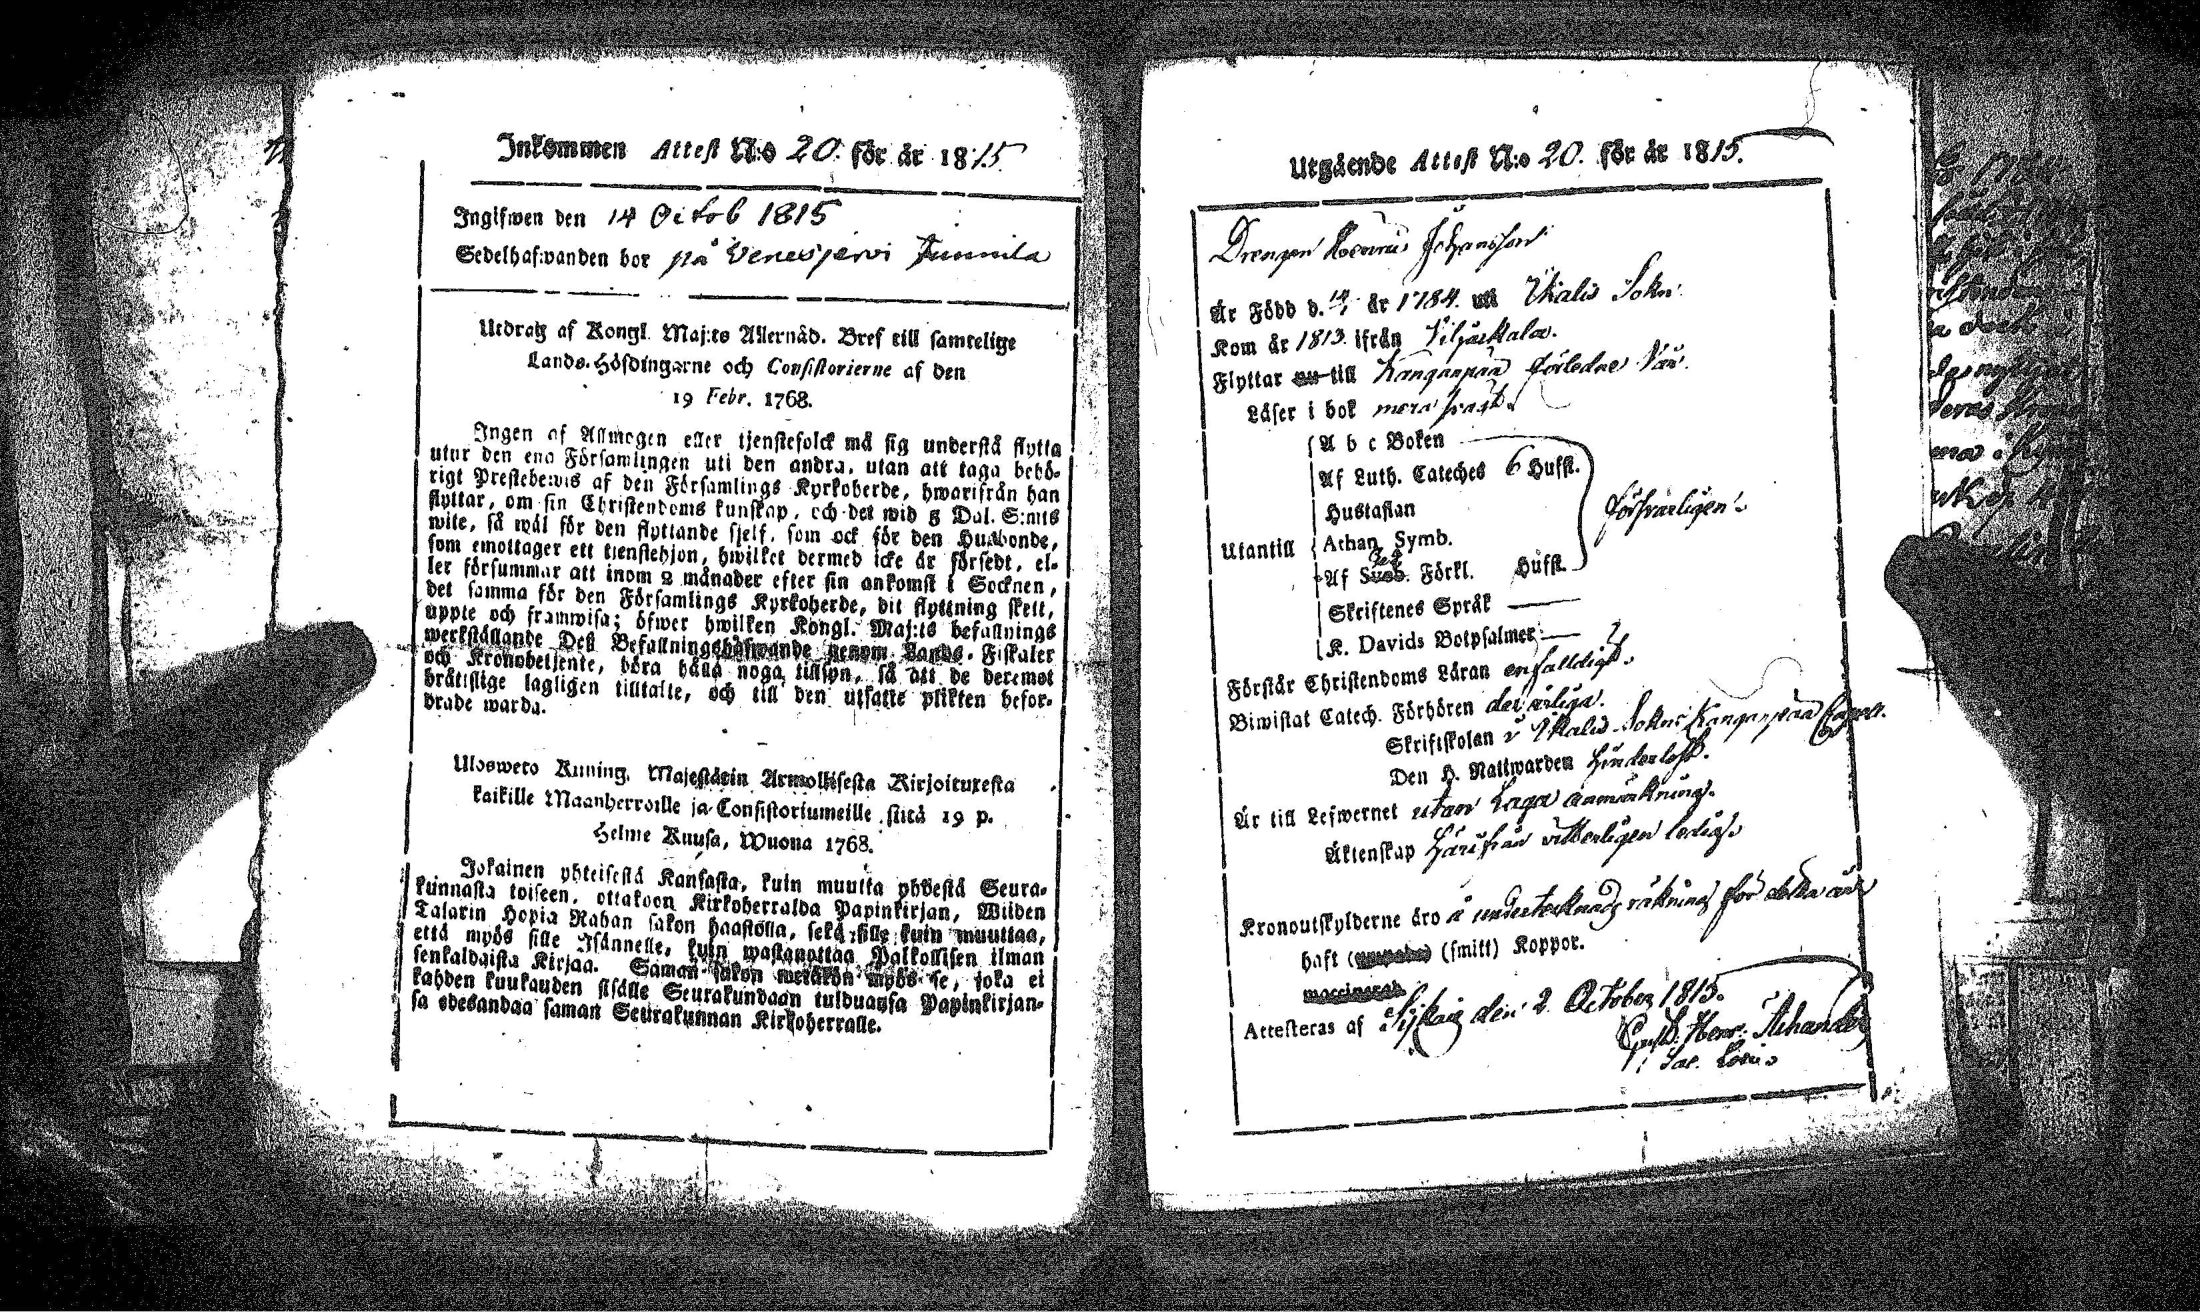 Inkommen Attest N:o 20. för år 1815.
Ingifwen den 14 Octob 1815
Sedelhafwanden bor på Venesjervi Junnila
Utdrag af Kongl. Maj:ts Allernåd. Bref till samtelige
Lands-Höfdingarne och Consistorierne af den
19 Febr. 1768.
Ingen af Allmogen eller tjenstefolck må sig understå flytta
utur den ena Församlingen uti den andra, utan att taga behö-
rigt Prestebewis af den Församlings Kyrkoherde, hwarifrån han
flyttar, om sin Christendoms kunskap, och det wid 5 Dal. S:mts
wite, så wäl för den flyttande sjelf, som ock för den Husbonde,
som emottager ett tienstehjon, hwilket dermed icke är försedt, el-
ler försummar att inom 2 månader efter sin ankomst i Socknen,
det samma för den Församlings Kyrkoherde, dit flyttning skett,
uppte och framwisa; öfwer hwilken Kongl. Maj:ts befallnings
werkställande Deß Befallningshafwande genom Lands-Fiskaler
och Kronobetjente, böra hålla noga tillsyn, så att de deremot
bråttslige lagligen tilltalte, och till den utsatte plikten befor-
drade warda.
Ulosweto Kuning. Majestätin Armollisesta Kirjoituxesta
kaikille Maanherroille ja Consistoriumeille siitä 19 p.
Helme Kuusa, Wuona 1768.
Jokainen yhteisestä Kansasta, kuin muutta yhdestä Seura-
kunnasta toiseen, ottakoon Kirkoherralda Papinkirjan, Wiiden
Talarin Hopia Rahan sakon haastolla, sekä sille kuin muuttaa,
että myös sille Isännelle, kuin wastanottaa Palkollisen ilman
senkaldaista Kirjaa. Saman sakon wetäkön myös se, joka ei
kahden kuukauden sisälle Seurakundaan tulduansa Papinkirjan-
sa edesandaa saman Seurakunnan Kirkoherralle.
Utgående Attest N:o 20. för år 1815.
Drengen Johansson
Är Född d. 14 år 1784. uti Ikalis Sokn.
Kom år 1813. ifrån Viljackala.
Flyttar nu till Kanganpää förledne Vår.
Läser i bok mera svagt.
A b c Boken
Af Luth. Cateches 6 Hufst.
Hustaflan
Utantill Athan Symb.
Af Förkl. Hufst. försvarligen
Skriftenes Språk —
K. Davids Botpsalmer —
Förstår Christendoms Läran enfalldigt.
Biwistat Catech. Förhören de årliga.
Skriftskolan i Ikalis Sokns Kanganpää Capell.
Den H. Nattwarden hinderlöst.
Är till Lefwernet utan Laga anmärkning.
Äktenskap härifrån vitterligen ledig
Kronoutskylderne äro å undertecknads räkning för detta år
haft (smitt) Koppor.
Attesteras af den 2 October 1815.
Gust. Henr. Achander
Sac. Com.